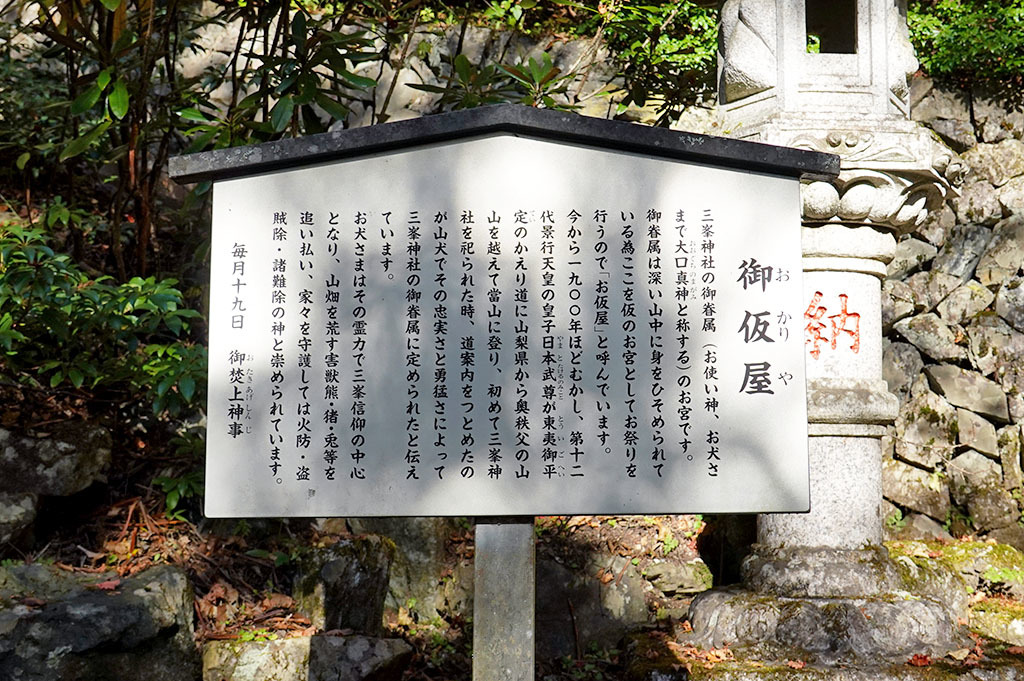 御仮屋
おかりや
三峯神社の御眷属(お使い神、お犬さ
まで大口真神と称する)のお宮です。
おおぐちのまがみ
御眷属は深い山中に身をひそめられて
いる為ここを仮のお宮としてお祭りを
行うので「お仮屋」と呼んでいます。
今から一九〇〇年ほどむかし、第十二
代景行天皇の皇子日本武尊が東夷御平
やまとたけるのみこと とういごへい
定のかえり道に山梨県から奥秩父の山
山を越えて當山に登り、初めて三峯神
社を祀られた時、道案内をつとめたの
が山犬でその忠実さと勇猛さによって
三峯神社の御眷属に定められたと伝え
ています。
お犬さまはその霊力で三峯信仰の中心
となり、山畑を荒す害獣熊・猪・兎等を
追い払い、家々を守護しては火防・盗
賊除・諸難除の神と崇められています。
毎月十九日 御焚上神事
おたきあげしんじ
納